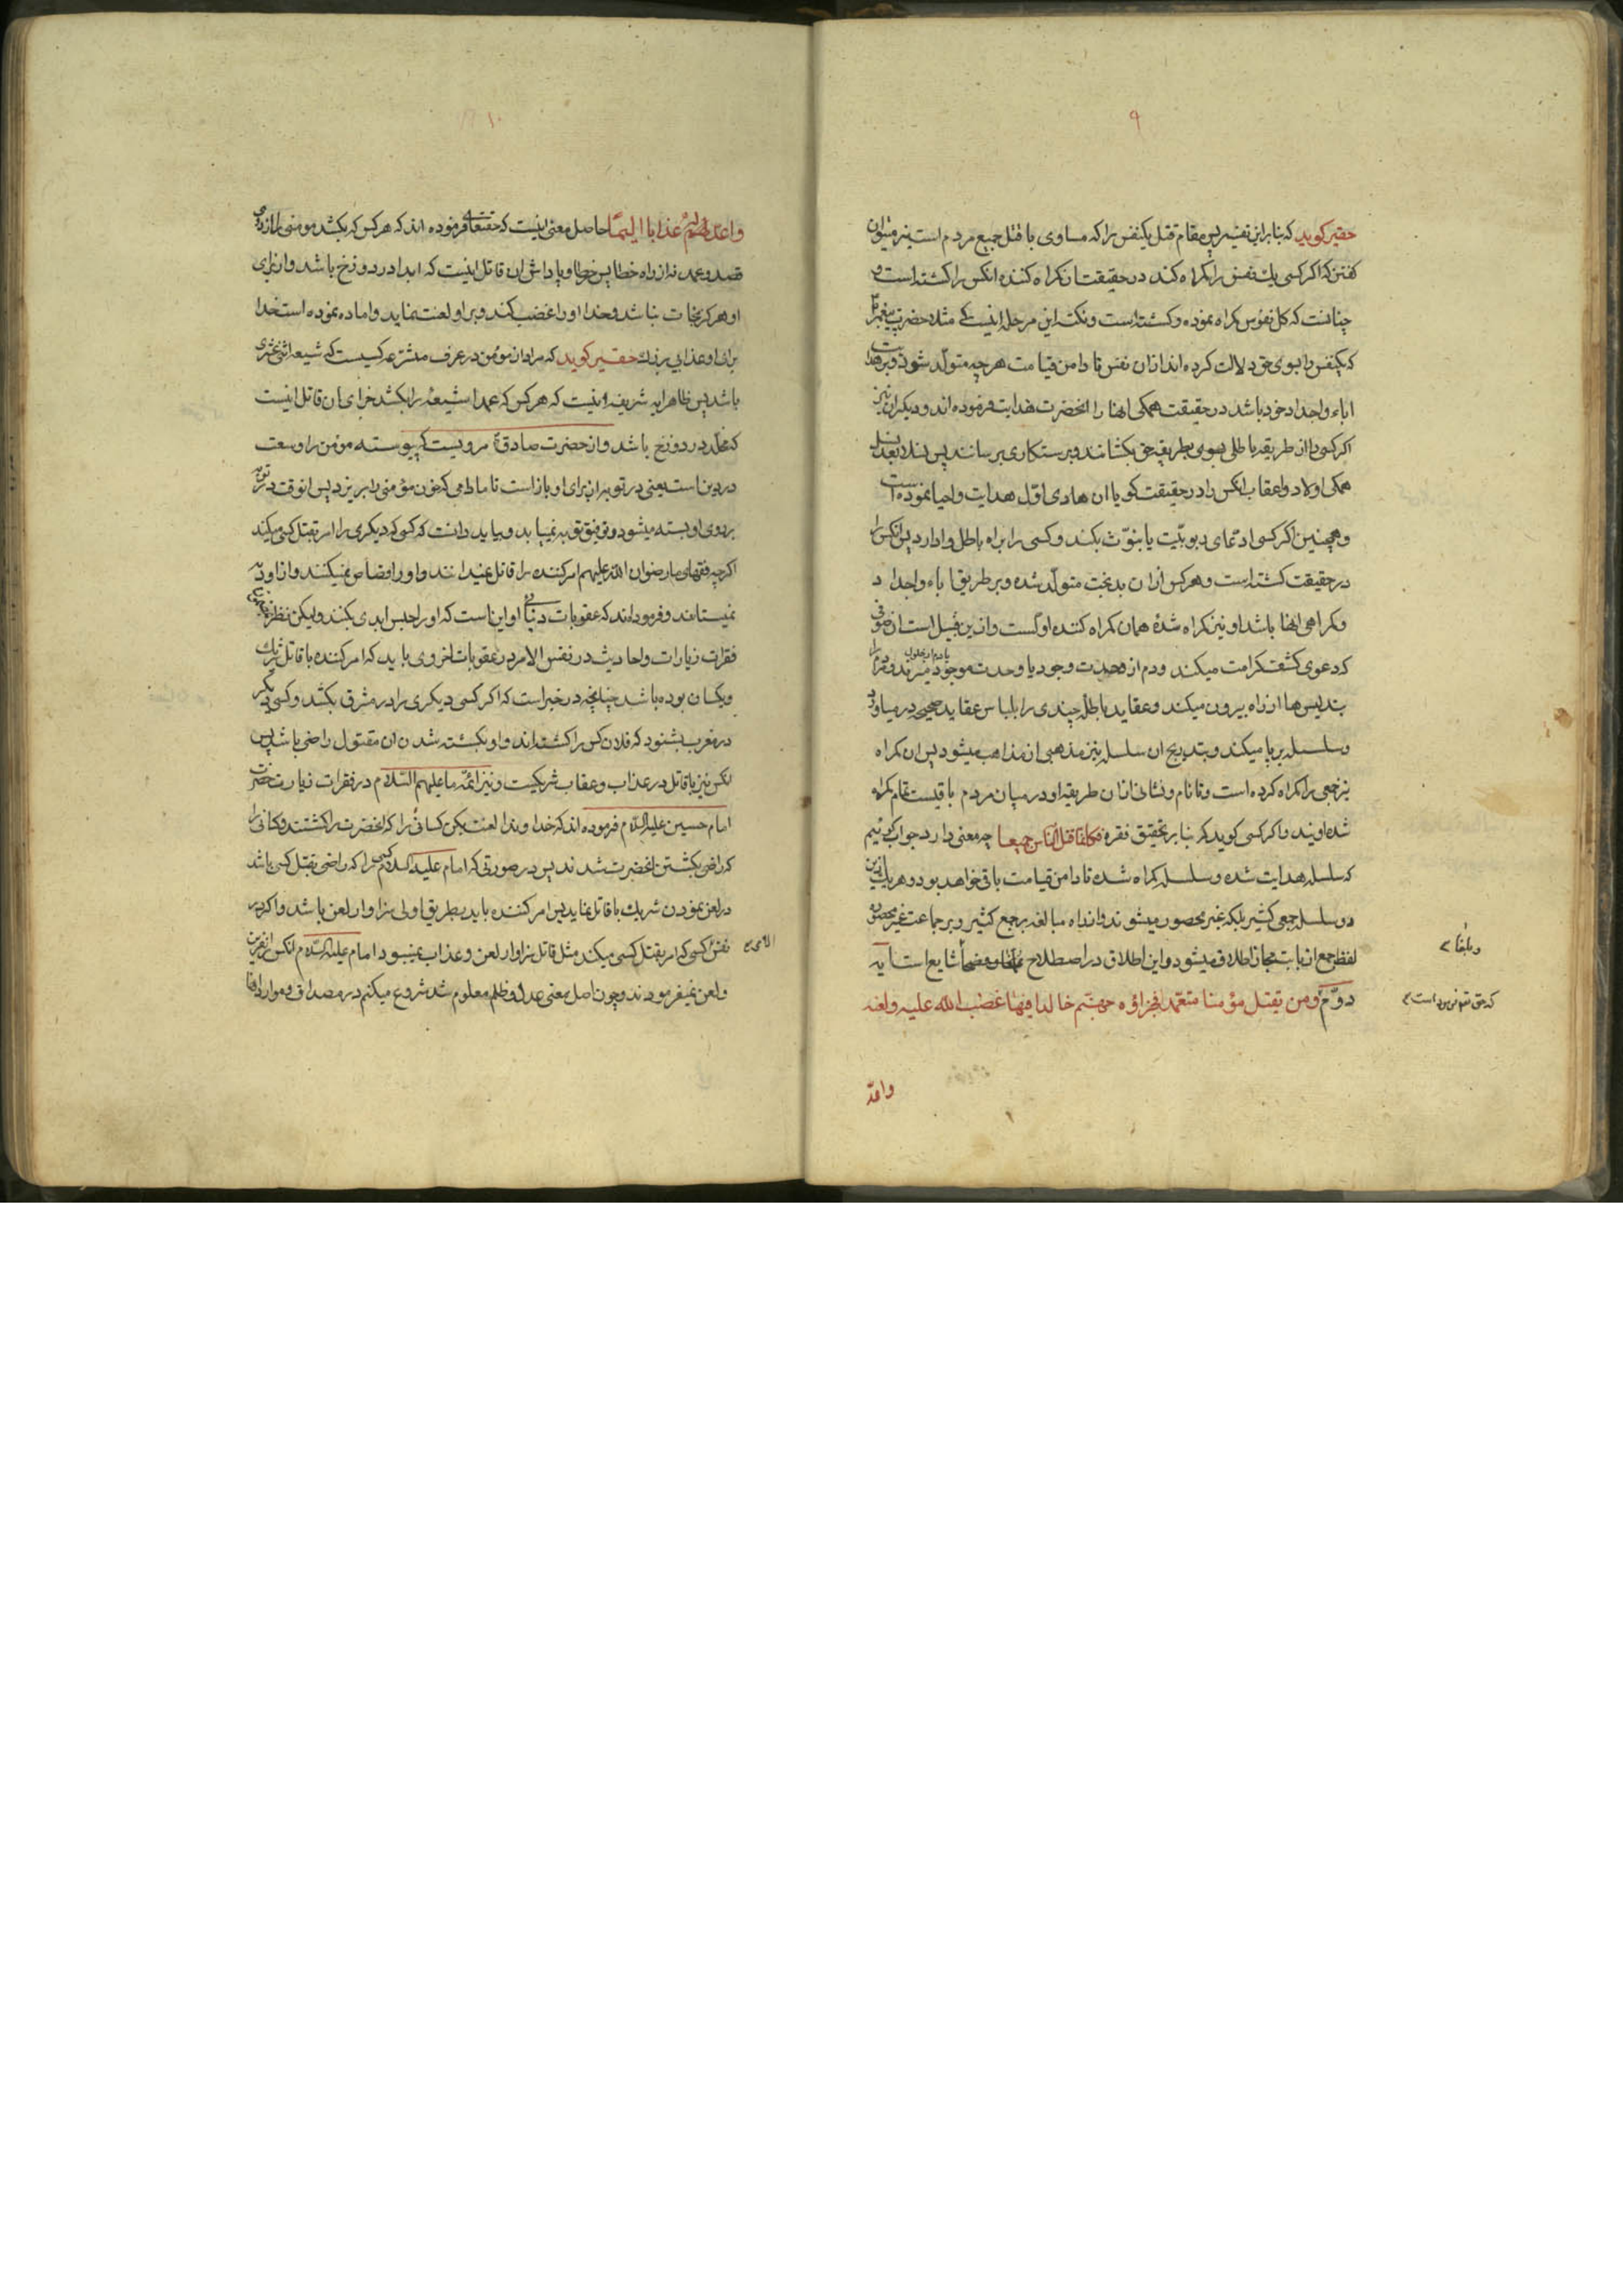 ۹
حقیر کوید که بنابراین تفسیر پس مقام قتل یکنفس را که مساوی با قتل جمیع مردم است نیز میتوان
کفتن که اکر کسی یك نفس را کمراه کند در حقیقت ان کمراه کننده انکس را کشته است و
چنانست که کل نفوس کمراه نموده و کشته است و نکته این مرحله اینست که مثلا حضرت پیغمبر
که یکنفس را بسوی حق دلالت کرده اند از ان نفس تا دامن قیامت هر چه متولد شود و بر هدایت
اباء و اجداد خود باشد در حقیقت همکی انها را انحضرت هدایت فرموده اند و دیکران نیز
اکر کسی را از طریقه باطلی بسوی طریقه حق بکشانند و برستکاری برسانند پس نسلا بعد نسل
همکی اولاد و اعقاب انکس را در حقیقت کویا ان هادی اول هدایت و احیا نموده است
و همچنین اکر کسی ادعای ربوبیت یا بنوت بکند و کسی را براه باطل وادارد پس انکس را
در حقیقت کشته است و هر کس از ان بدبخت متولد شده و بر طریق اباء و اجداد
و کمراهی انها باشد او نیز کمراه شدهٔ همان کمراه کننده اوست و از بن قبیل است ان صوفی
که دعوی کشف کرامت میکند و دم از وحدت وجود یا وحدت موجود میزند و مردم را
بتدیس ها از راه بیرون میکند و عقاید باطله چندی را بلباس عقاید صحیحه در میاورد
و سلسله بر پا میکند و بتدریج ان سلسله نیز مذهبی از مذاهب میشود پس ان کمراه
نیز جمعی را کمراه کرده است و تا نام و نشانی از ان طریقه او در میان مردم باقیست تمام کمراه
شده اویند و اکر کسی کوید که بنابر تحقیق فقره فکانما قتل الناس جمیعا چه معنی دارد جواب کوئیم
که سلسله هدایت شده و سلسله کمراه شده تا دامن قیامت باقی خواهد بود و هر یك ازین
دو سلسله جمعی کثیر بلکه غیر محصور میشوند و از راه مبالغه بر جمع کثیر و بر جماعت غیر محصوره
لفظ جمع از بابت مجاز اطلاق میشود و این اطلاق در اصطلاح شایع است ایه
دوّم و من یقتل مؤمنا متعمدا فجزاؤه جهنّم خالدا فیها و غضب الله علیه و لعنه
و بلغا
واعدّ
۱۰
واعدّ لهم عذابا الیما حاصل معنی اینست که حقتعالی فرموده اند که هر کس که بکشد مومنی را از روی
قصد و عمد نه از راه خطا پس جزا و پاداش ان قاتل اینست که ابدا در دوزخ باشد و از برای
او هرکز نجات نباشد و خدا او را غضب کند و بر او لعنت نماید و اماده نموده است خدا
برای او عذابی بزرك حقیر کوید که مراد از مومن در عرف متشرعه کسیست که شیعه اثنی عشری
باشد پس ظاهر ایه شریفه اینست که هر کس که عمدا شیعهٔ را بکشد جزای ان قاتل اینست
که مخلد در دوزخ باشد و از حضرت صادق مرویست که پیوسته مومن را وسعت
در دین است یعنی در توبه از برای او باز است تا مادامی که خون مؤمنی را بریزد پس انوقت در توبه
بروی او بسته میشود و توفیق توبه نمییابد و بباید دانست که کسی که دیکری را امر بقتل کسی میکند
اکرچه فقهای ما رضوان الله علیهم امر کننده را قاتل نمیدانند و او را قصاص نمیکنند و از او دیه
نمیستانند و فرموده اند که عقوبات دنیائی او این است که او را حبس ابدی بکنند ولیکن نظر ببعضی
فقرات زیارات و احادیث در نفس الامر در عقوبات اخروی باید که امر کننده با قاتل شریك
و یکسان بوده باشد چنانچه در خبر است که اکر کسی دیکری را در مشرق بکشد و کسی دیکر
در مغرب بشنود که فلان کس را کشته اند و او بکشته شدن ان مقتول راضی باشد پس
انکس نیز با قاتل در عذاب و عقاب شریکیست و نیز ائمه ما علیهم السّلام در فقرات زیارت حضرت
امام حسین علیه السّلام فرموده اند که خداوندا لعنت بکن کسانی را که انحضرت را کشتند و کسانی را
که راضی بکشتن انحضرت شدند پس در صورتی که امام علیه السّلام کسی را که راضی بقتل کسی باشد
در لعن نمودن شریك با قاتل نماید پس امر کننده باید بطریق اولی سزاوار لعن باشد و اکر در
نفس الامری کسی که امر بقتل کسی میکند مثل قاتل سزاوار لعن و عذاب نمیبود امام علیه السّلام انکس را نفرین
و لعن نمیفرمودند و چون اصل معنی عدل و ظلم معلوم شد شروع میکنم در مصداق و موارد انها